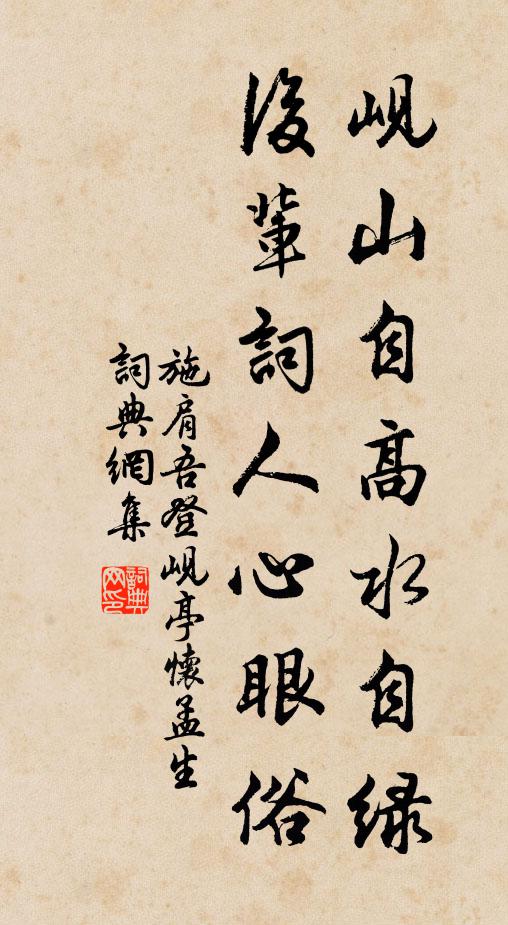 岘山自高水自緑
後輩詞人心眼俗
施肩吾登岘亭懷孟生
詞典網集
詞典
网印